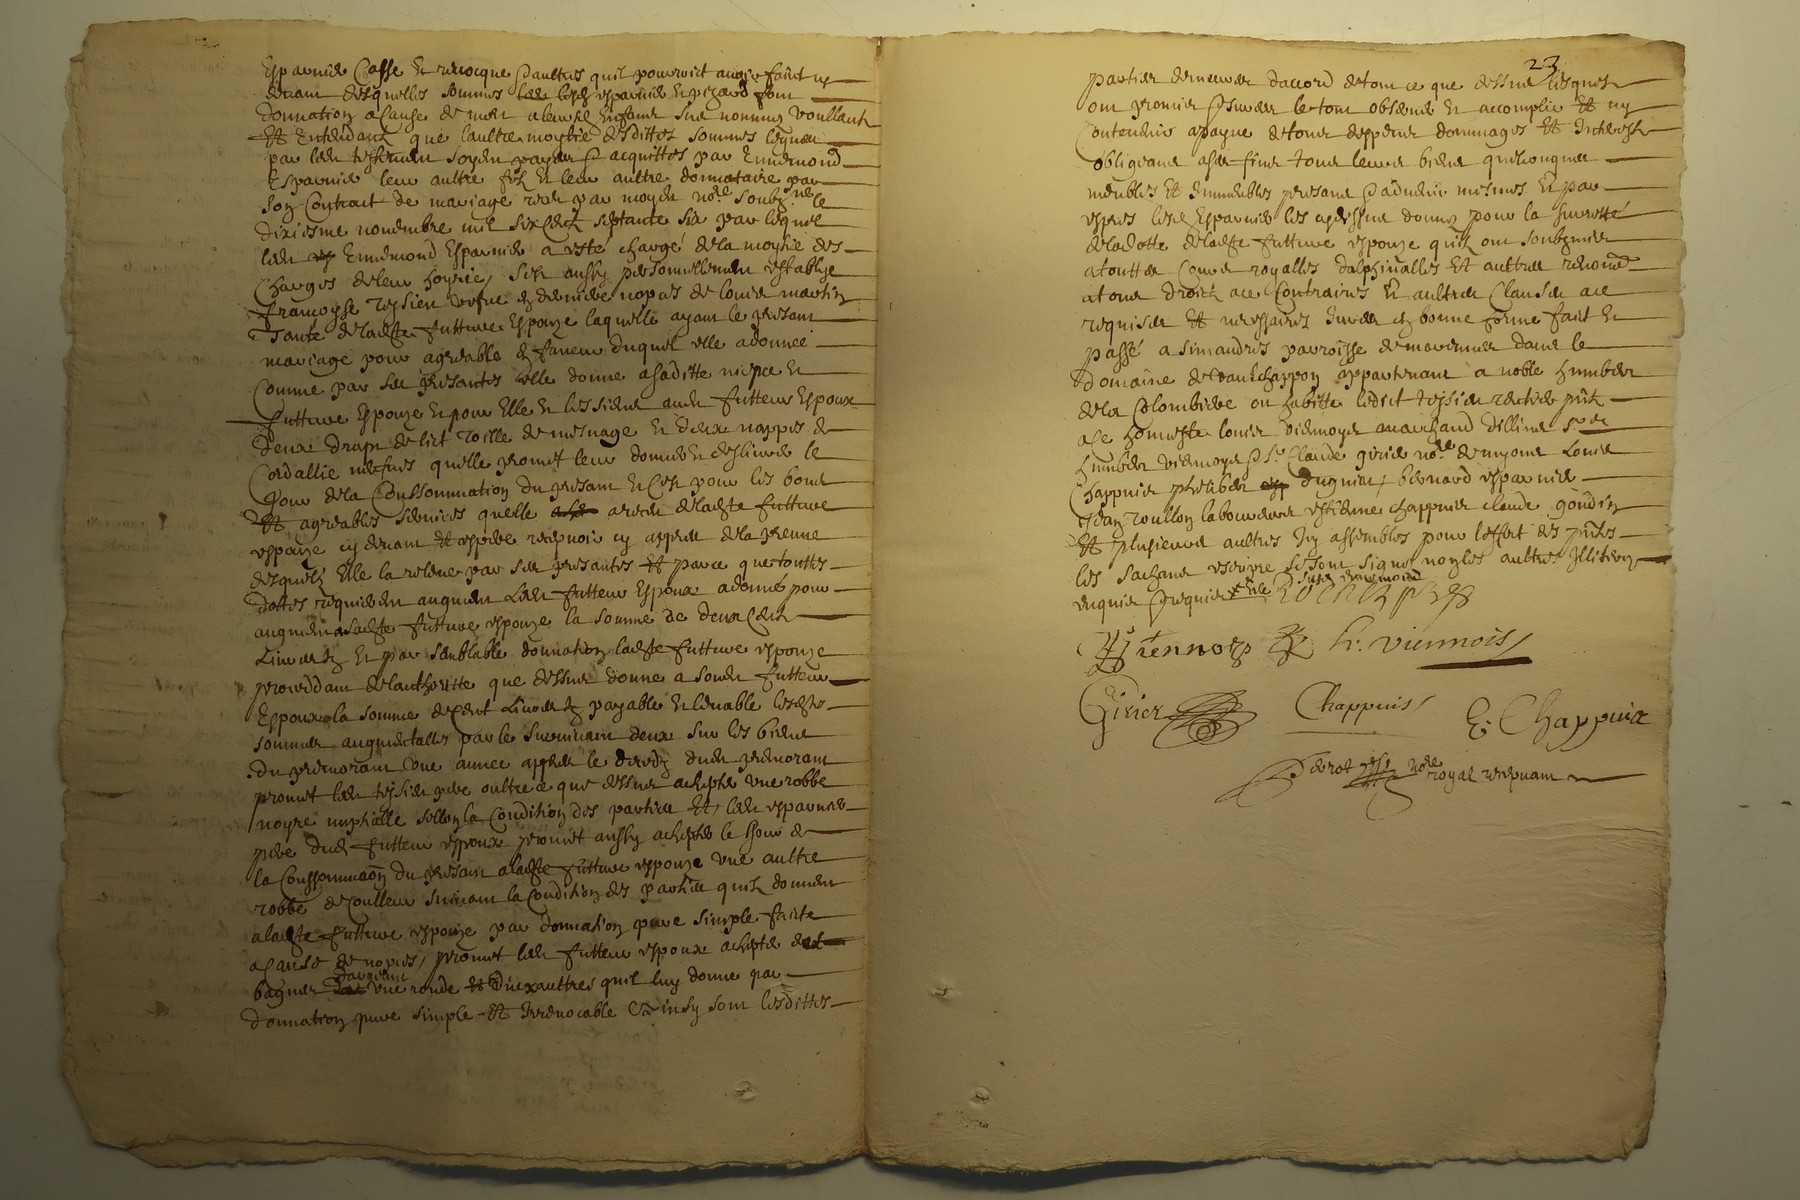 Esparnier Casse et revocque daultres quil pourroict avoir faict cy
devant desquelles sommes lesd esparnier et pizard font
donnation a cause de mort a leursd enfans sus nommez voullantz
Et Entendantz que laultre moytié desdittes sommes legueez
par led testement soyent payees & acquittes par Ennemond
Esparnier leur aultre filz et leur aultre donnataire par
son Contract de mariage receu par moyd no.re soubz.né le
dixiesme novembre mil six centz septante six par lequel
led Ennemond Esparnier a esté chargé de la moytie des
Charges de leur hoyrie, s'est aussy personnellement establye
françoyse tessieu vefve en derniere nopces de louis martin
Tante de ladte future Espouze laquelle ayant le presant
mariage pour agreable en faveur duquel elle a donnée
Comme par ses presantes elle donne a saditte niepce et
future Espouze et pour Elle et les siens aud futteur Espoux
deux draps de lict toille de mesnage et deux nappes de
Cordallie neufves quelle promet leur donner et deslivrer le
Jour de la Conssommation du presant et c'est pour les bons
Et agreables services quelle a receu de ladte future
espouze cy devant et espere recepvoir cy appres de la preuve
desquelz Elle la releve par ses presantes Et parce que touttes
dottes requierent augment Led futteur Espoux a donné pour
augment a ladte future espouze la somme de deux Centz
Livres tz et par semblable donnation ladte future espouze
proceddant de lauthoritte que dessus donne a sond futteur
Espoux la somme de cent Livres tz payable et levable lesdtes
sommes augmentalles par le survivant deux sur les biens
du premorant une annee appres le decedz dud premorant
promet led tessieu pere oultre ce que dessus achepter une robbe
noyre nuptialle sellon la Condition des parties Et, led esparnier
pere dud futteur espoux promet aussy achepter le Jour de
la Conssommaon du presant a ladte future espouze une aultre
robbe de coulleur suivant la Condition des parties quilz donnent
a ladte future espouze par donnation pure simple faicte
a cause de nopces, promet led futteur espoux achepter
bagues dargent une ronde et deux aultres quil luy donne par
donnation pure simple et irrevocable Et ainsy sont lesdittes
23
parties demeurees daccord de tout ce que dessus lesquelz
ont promis & juré le tout observer et accomplir Et ny
Contrevenir a payne de tous despens dommages Et Interestz
obligeant a ces fins tous leurs biens quelconques
meubles Et Immeubles presantz & advenir mesmes Et par
expres lesd Esparnier les cydessus donnez pour la surretté
de la dotte de ladte future espouze quilz ont soubzmis
a touttes Cours royalles dalphinalles Et aultres renoncé
a tous droictz a ce Contraires Et aultres Clauses a ce
requises Et necessaires Jurées en bonne forme faict et
passé a simandres parroisse de marennes dans le
domaine de vaulchappon appartenant a noble humbert
de la Colombiere ou habitte ledict tessieu
a ce honneste louis viennoys marchand dillins s.r
humbert viennoys & s.r Claude girier no.re de myons Louis
Chappuis philibert duguien, bernard esparnier
Jean roullon laboureurs estienne chappuis claude goudin
Et plusieurs aultres Icy assembles pour leffect des pntes
les sachans escripre se sont signez non les aultres Illiterez
enquis & requis
Viennois h: viennois
Girier Chappuis E: Chappuix
no.re royal recepvant